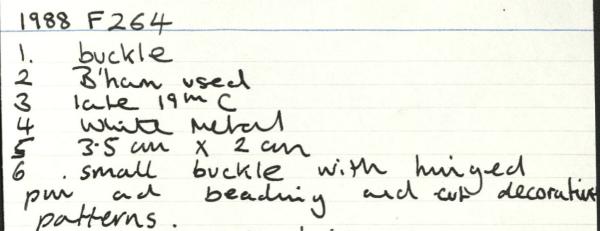 1988 F264
1. buckle
2 B'ham used
3 late 19th C
4 White Metal
5 3.5 cm x 2 cm
6 . small buckle with hinged
pin ad beading and cut decorative
patterns.